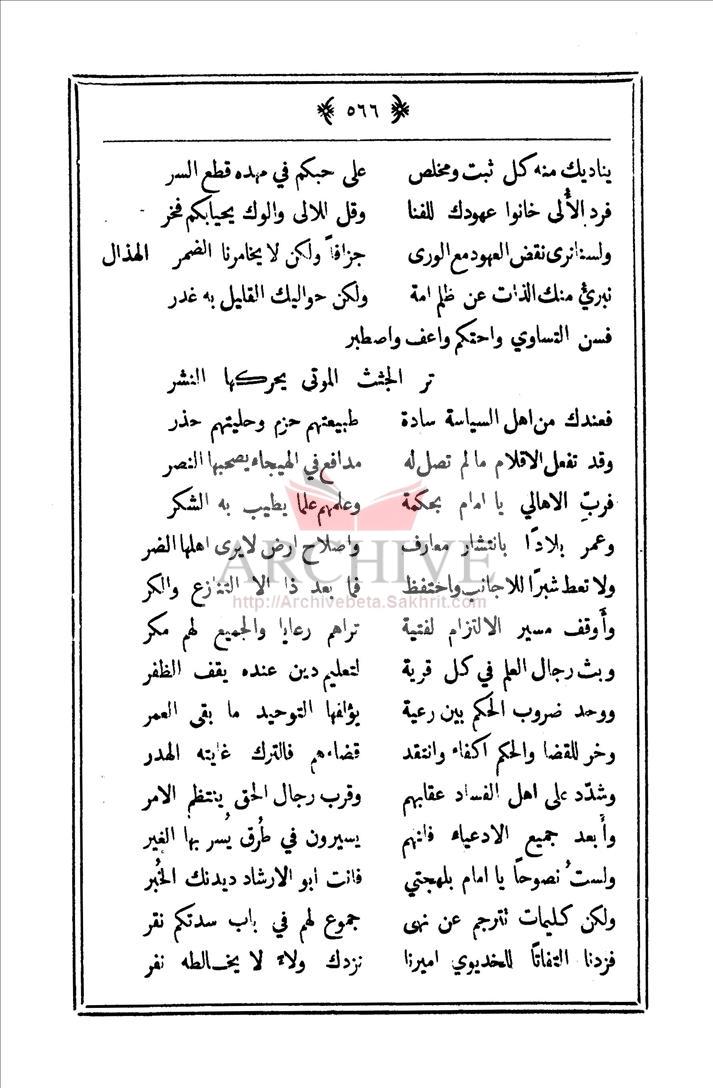 ٥٦٦
يناديك منه كل ثبت ومخلص على حبكم في مهده قطع السر
فرد الأُلى خانوا عهودك للفنا وقل اللالى والوك يحيابكم فخر
ولسنا نرى نقض العهود مع الورى جزافاً ولكن لا يخامرنا الضمر الهذال
نبرئ منك الذات عن ظلم امة ولكن حواليك القليل به غدر
فسن التساوي واحتكم واعف واصطبر
تر الجثث الموتى يحركها النشر
فعندك من اهل السياسة سادة طبيعتهم حزم وحليتهم حذر
وقد تفعل الاقلام ما لم تصل له مدافع في الهيجاء يصحبها النصر
فربِّ الاهالي يا امام بحكمة وعلمهم علما يطيب به الشكر
وعمر بلادًا بانتشار معارف واصلاح ارض لا يرى اهلها الضر
ولا تعط شبرًا للاجانب واحتفظ فما بعد ذا الا التنازع والكر
وأوقف مسير الالتزام لفتية تراهم رعايا والجميع لهم مكر
وبث رجال العلم في كل قرية لتعليم دين عنده يقف الظفر
ووحد ضروب الحكم بين رعية يؤلفها التوحيد ما بقى العمر
وخر للقضا والحكم اكفاء وانتقد قضاءهم فالترك غايته الهدر
وشدّد على اهل الفساد عقابهم وقرب رجال الحق ينتظم الامر
وأبعد جميع الادعياء فانهم يسيرون في طُرق يُسر بها الغير
ولستُ نصوحاً يا امام بلهجتي فانت ابو الارشاد ديدنك الخُبر
ولكن كليمات تترجم عن نهى جموع لهم في باب سدتكم نقر
فزدنا التفاتًا للخديوي اميرنا نزدك ولاءً لا يخالطه نفر
ARCHIVE
http://Archivebeta.Sakhrit.com